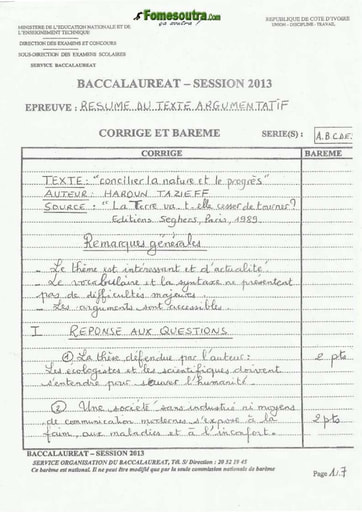 Fomesoutra.com
ça soutra !
MINISTERE DE L'EDUCATION NATIONALE ET DE
L'ENSEIGNEMENT TECHNIQUE
REPUBLIQUE DE COTE D'IVOIRE
UNION – DISCIPLINE - TRAVAIL
DIRECTION DES EXAMENS ET CONCOURS
SOUS-DIRECTION DES EXAMENS SCOLAIRES
SERVICE BACCALAUREAT
BACCALAUREAT – SESSION 2013
EPREUVE : RESUME DU TEXTE ARGUMENTATIF
CORRIGE ET BAREME SERIE(S) : A.B.C.D.E.
CORRIGE BAREME
TEXTE : "concilier la nature et le progrès"
AUTEUR : HAROUN TAZIEFF
SOURCE : "La Terre va-t-elle cesser de tourner ?
Editions Seghers, Paris, 1989.
Remarques générales
- Le thème est intéressant et d'actualité.
- Le vocabulaire et la syntaxe ne présentent
pas de difficultés majeures.
- Les arguments sont accessibles.
I REPONSE AUX QUESTIONS
① La thèse défendue par l'auteur : 2 pts
Les écologistes et les scientifiques doivent
s'entendre pour sauver l'humanité.
② Une société sans industrie ni moyens 2 pts
de communication modernes s'expose à la
faim, aux maladies et à l'inconfort.
BACCALAUREAT – SESSION 2013
SERVICE ORGANISATION DU BACCALAUREAT, Tél. S/ Direction : 20 32 19 45
Ce barème est national. Il ne peut être modifié que par la seule commission nationale de barème
Page 1/7